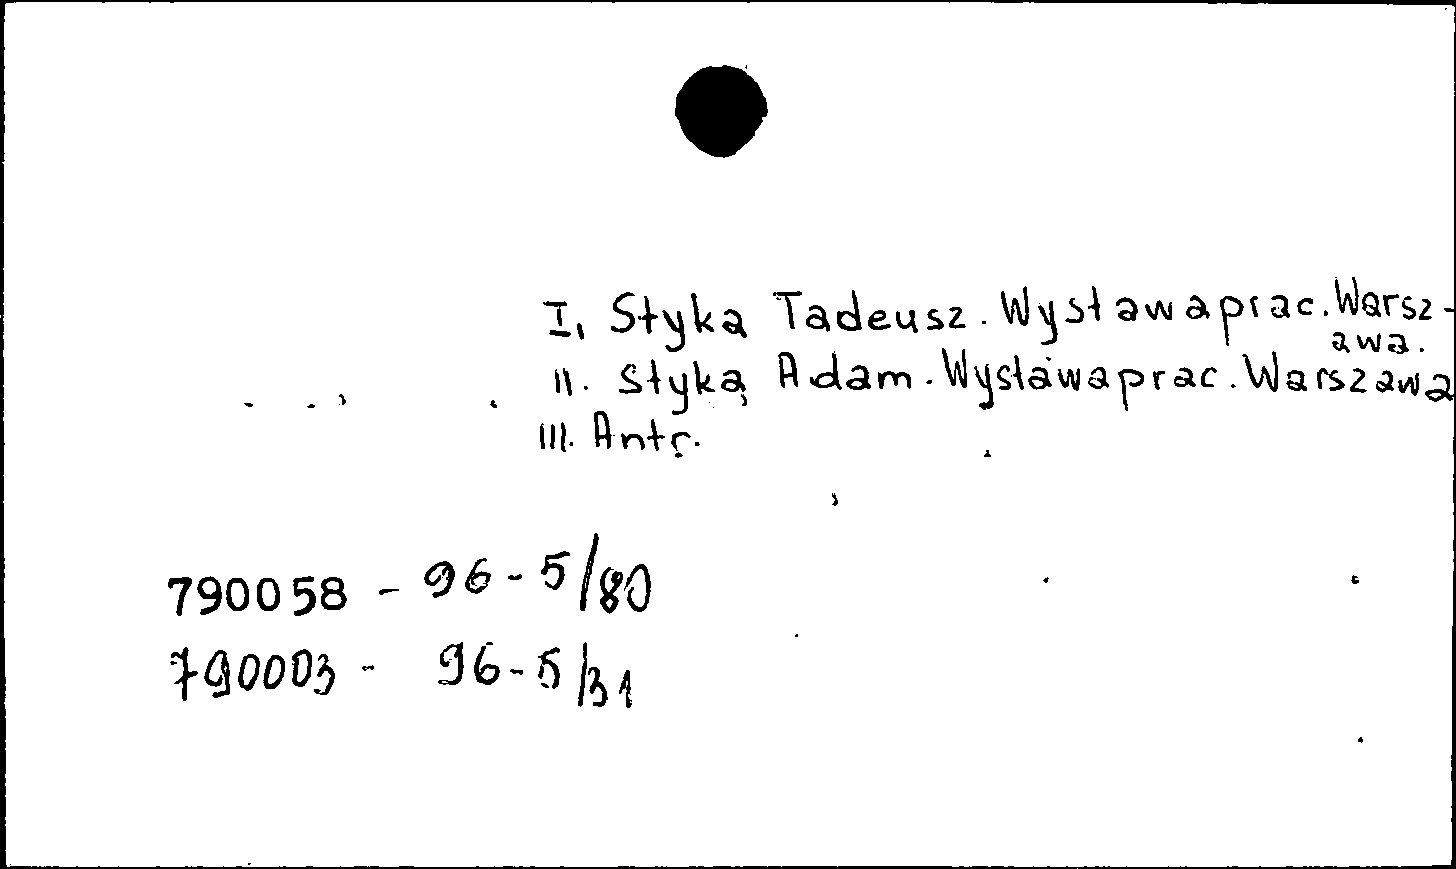 I. Styka Tadeusz. Wystawa prac. Warsz-
awa.
II. Styka Adam. Wystawa prac. Warszawa
III. Antr.
790058 - 96-5/80
790003 - 96-5/31